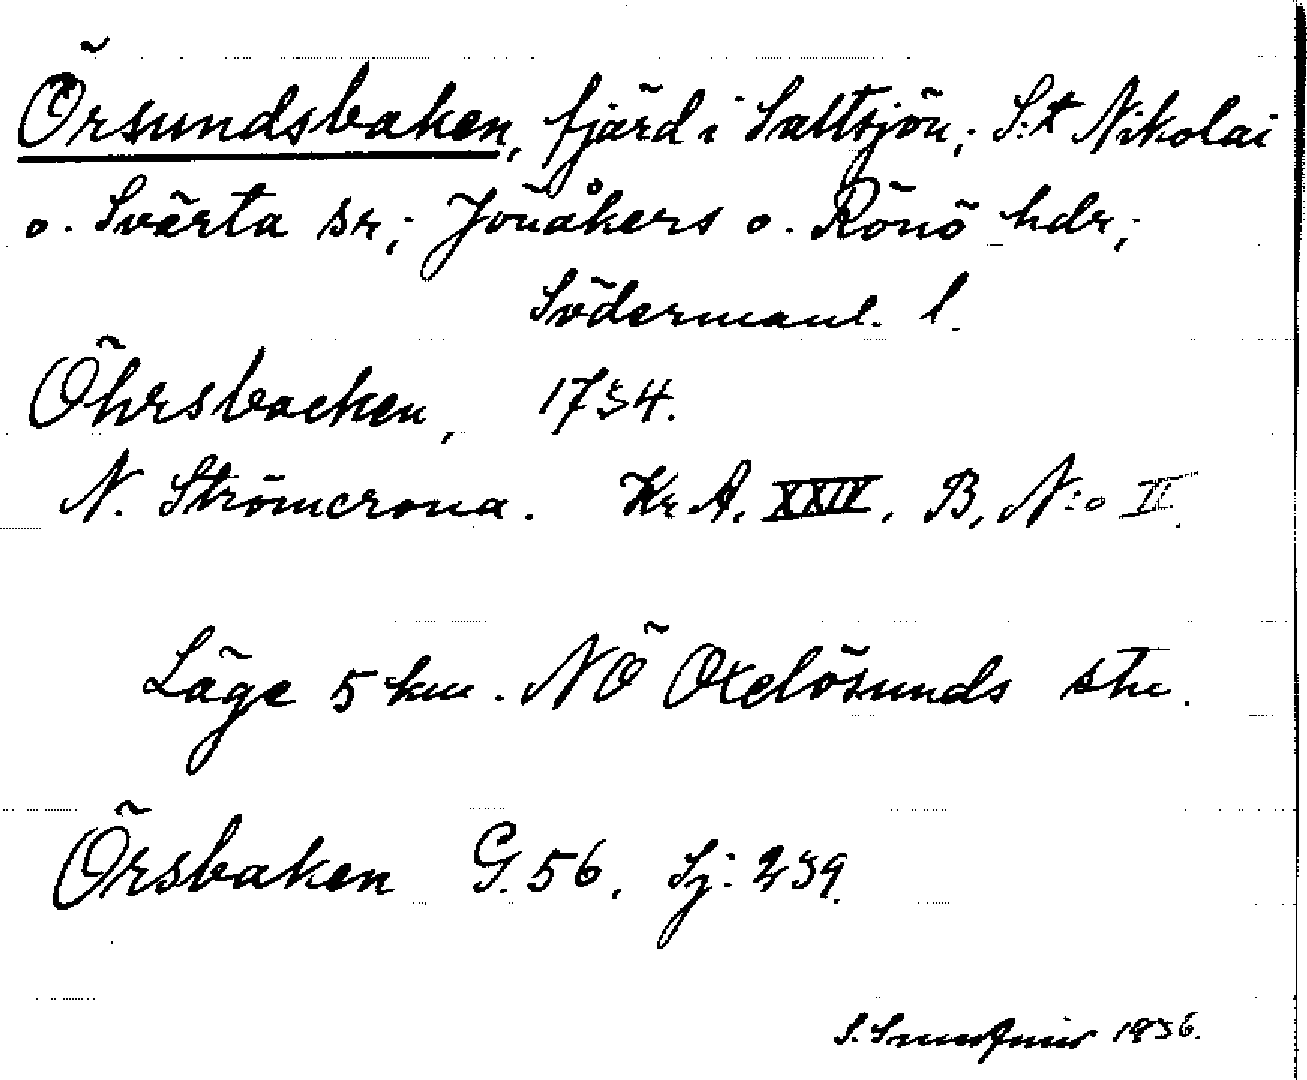 Örsundsbaken, fjärd i Saltsjön; S:t Nikolai
o. Svärta sr; Jönåkers o. Rönö hdr;
Södermanl. l.
Öhrsbacken, 1734.
N. Strömcrona. Kr. A. XXIV. B, N:o II.
Läge 5 km. NÖ Oxelösunds stn.
Örsbaken G. 56. Sj: 239.
S. 1936.